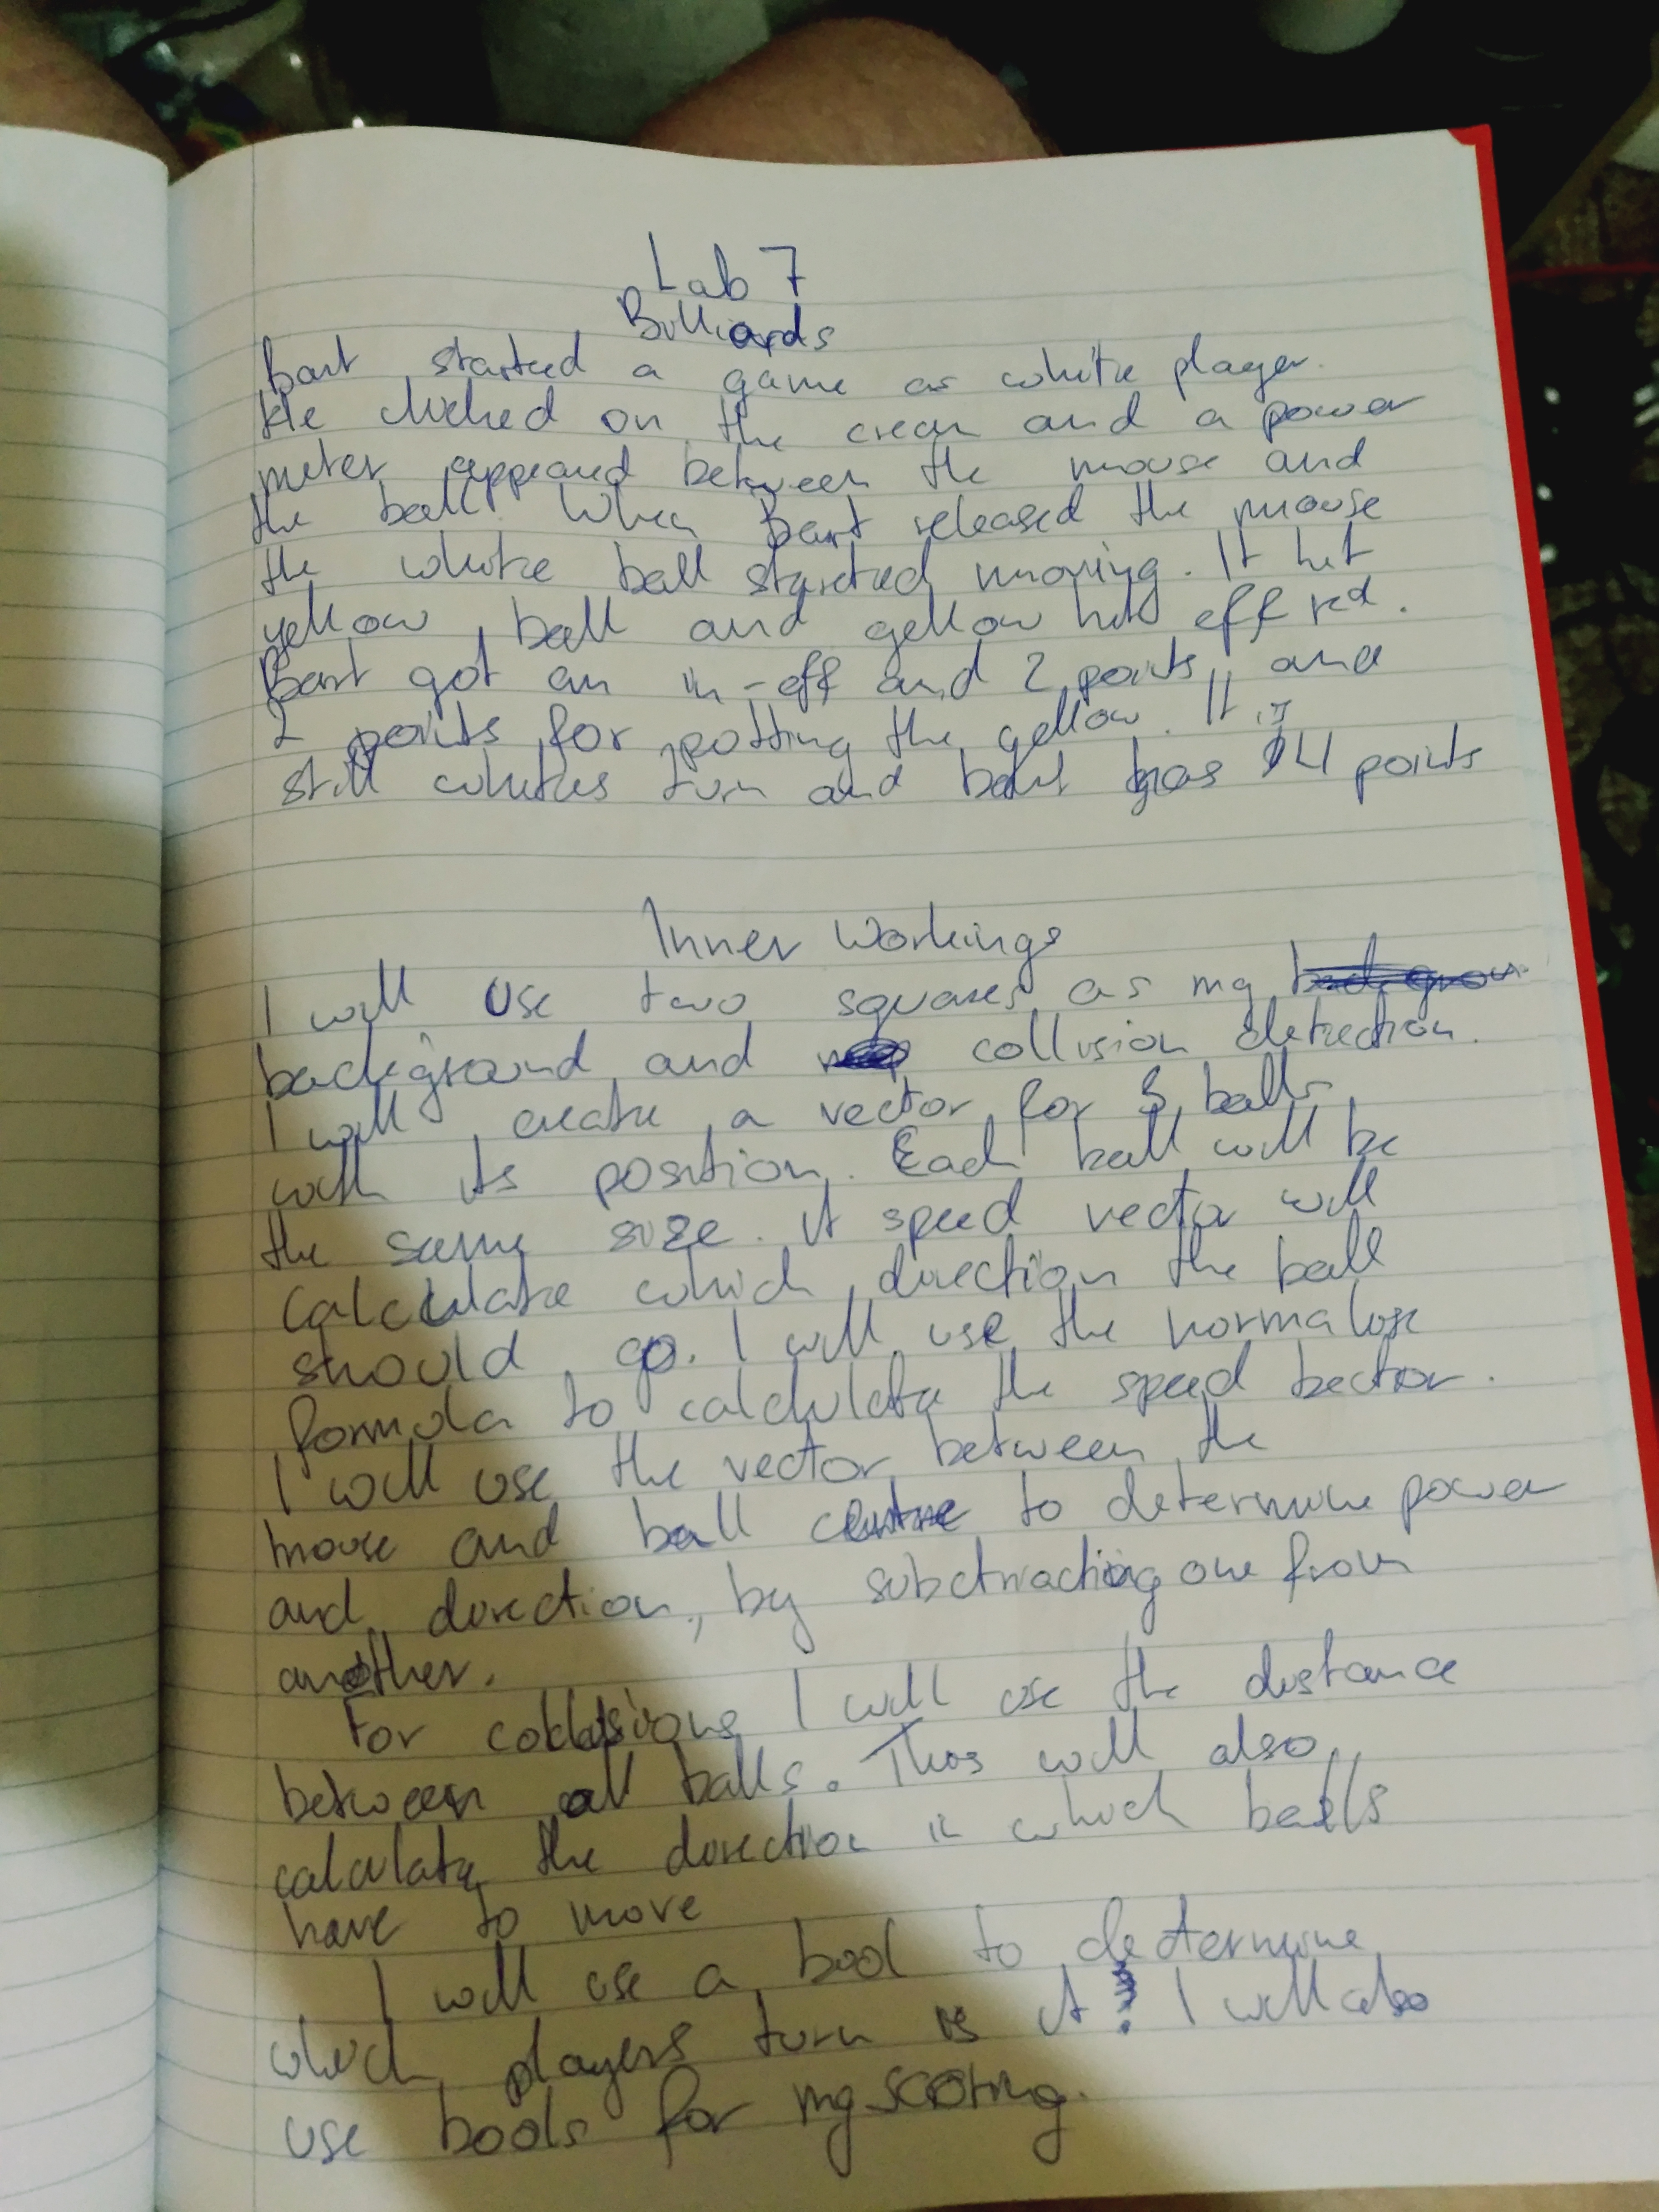 Lab 7
Billiards
Bart started a game as white player.
He clicked on the crean and a power
meter appeared between the mouse and
the ball. When Bart released the mouse
the white ball started moving. It hit
yellow ball and yellow hit off red.
Bart got an in-off and 2 points, and
2 points for potting the yellow. It is
still whites turn and bart has 4 points
Inner Workings
I will use two squares as my
background and collision detection.
I will create a vector for 3 balls
with its position. Each ball will be
the same size. A speed vector will
calculate which direction the ball
should go. I will use the normalise
formula to calculate the speed bector.
I will use the vector between the
mouse and ball centre to determine power
and direction, by subctracting one from
another.
For collisions I will use the distance
between all balls. This will also
calculate the direction in which balls
have to move
I will use a bool to determine
which players turn is it. I will also
use bools for my scoring.